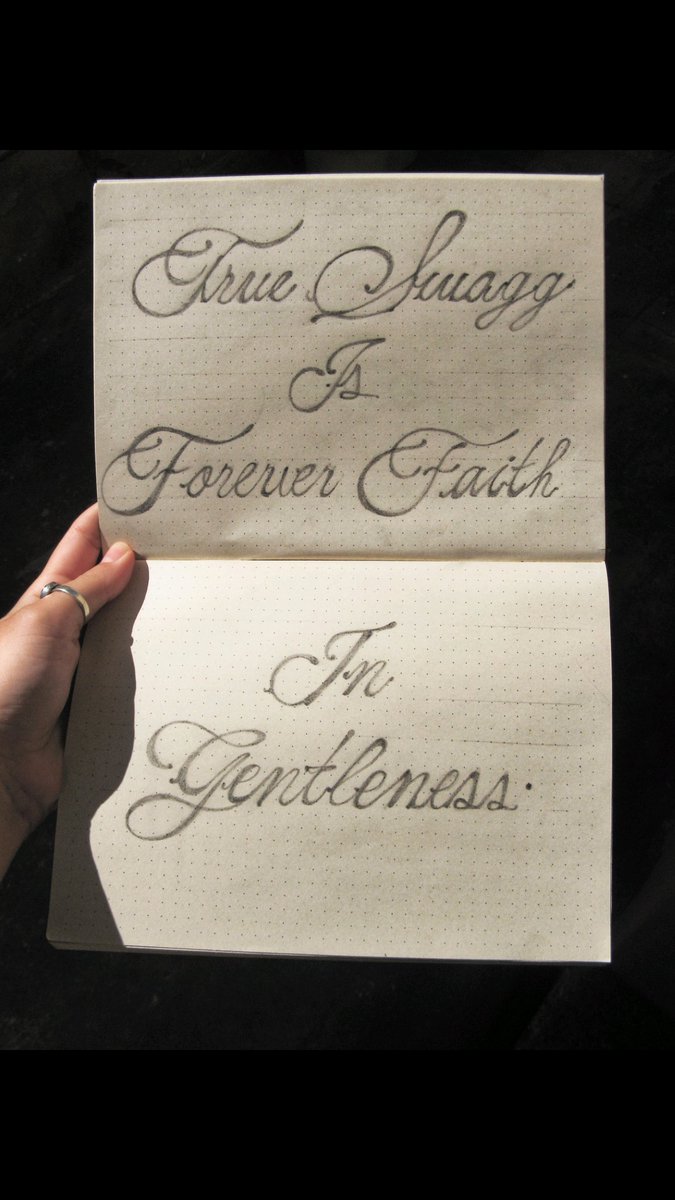 True Swagg
Is
Forever Faith
In
Gentleness.